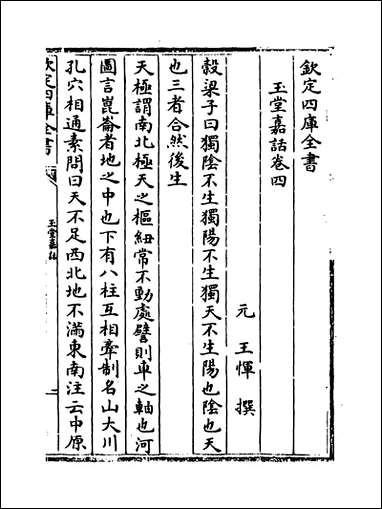 欽定四庫全書
玉堂嘉話卷四
元 王惲 撰
穀梁子曰獨陰不生獨陽不生獨天不生陽也陰也天
也三者合然後生
天極謂南北極天之樞紐常不動處譬則車之軸也河
圖言崑崙者地之中也下有八柱互相牽制名山大川
孔穴相通素問曰天不足西北地不滿東南注云中原
欽定四庫全書
玉堂嘉話
一